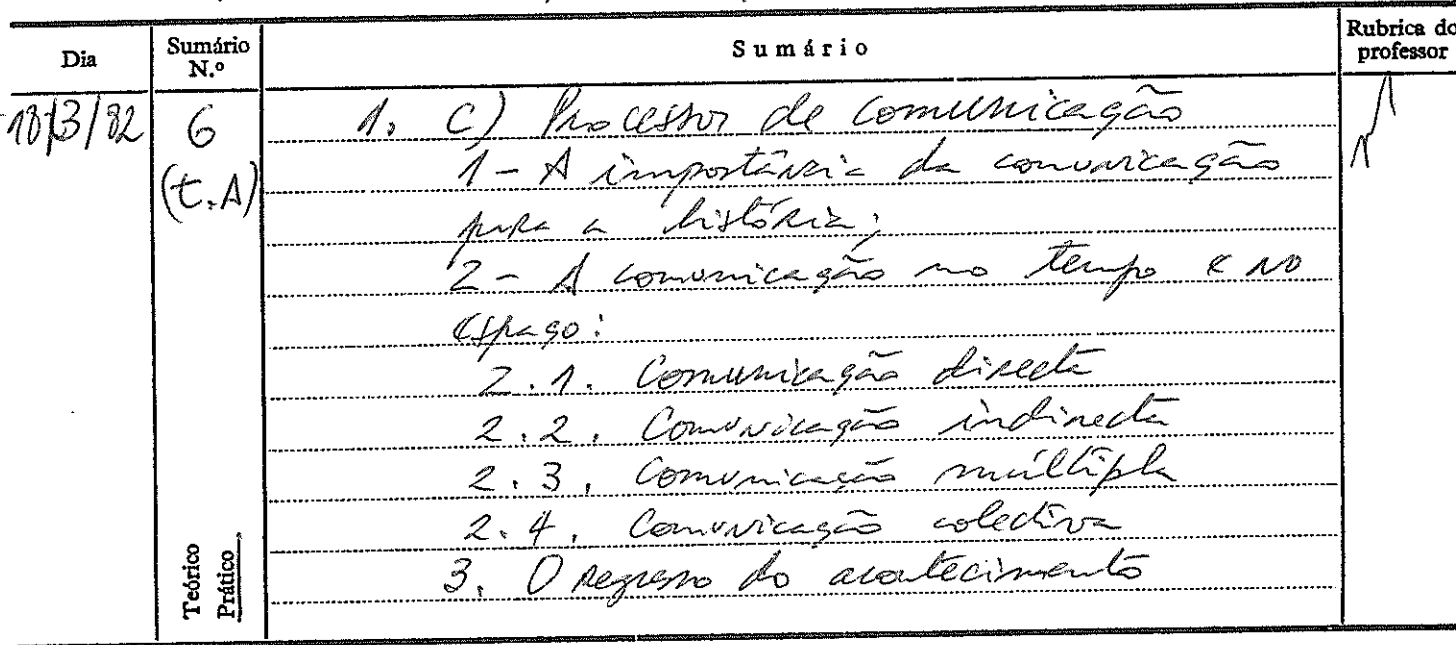 Dia Sumário N.º Sumário Rubrica do professor
18/3/82 6 1. C) Processos de comunicação
(t.A) 1 - A importância da comunicação
para a história;
2 - A comunicação no tempo e no
espaço:
2.1. Comunicação directa
2.2. Comunicação indirecta
2.3. Comunicação múltipla
2.4. Comunicação colectiva
3. O regresso do acontecimento
Teórico
Prático